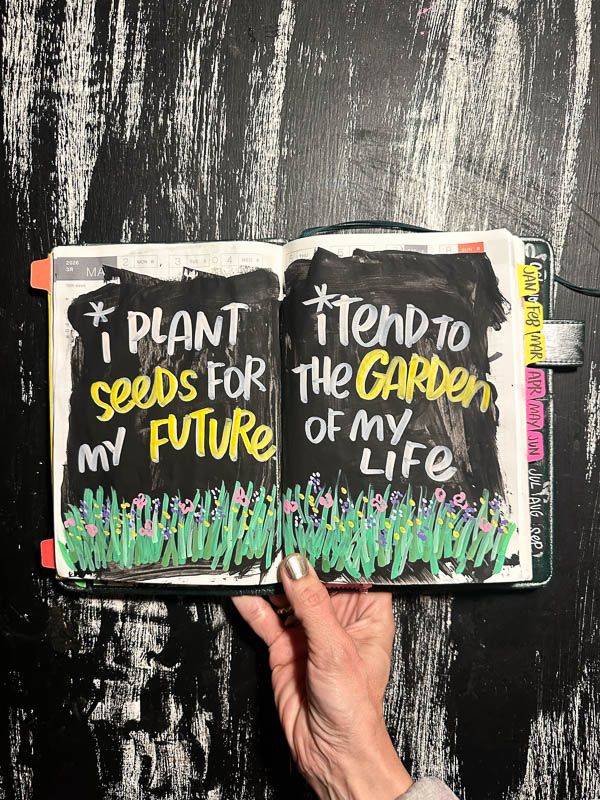 2026
MA
2 MON
3 TUE
4 WED
THU
8 SUN
* i PLANT
SeeDS FOR
MY FUTURe
* i TenD TO
THe GARDen
OF MY
LIFe
JAN
FeB
MAR
APR
MAY
JUN
JUL
AUG
SeP